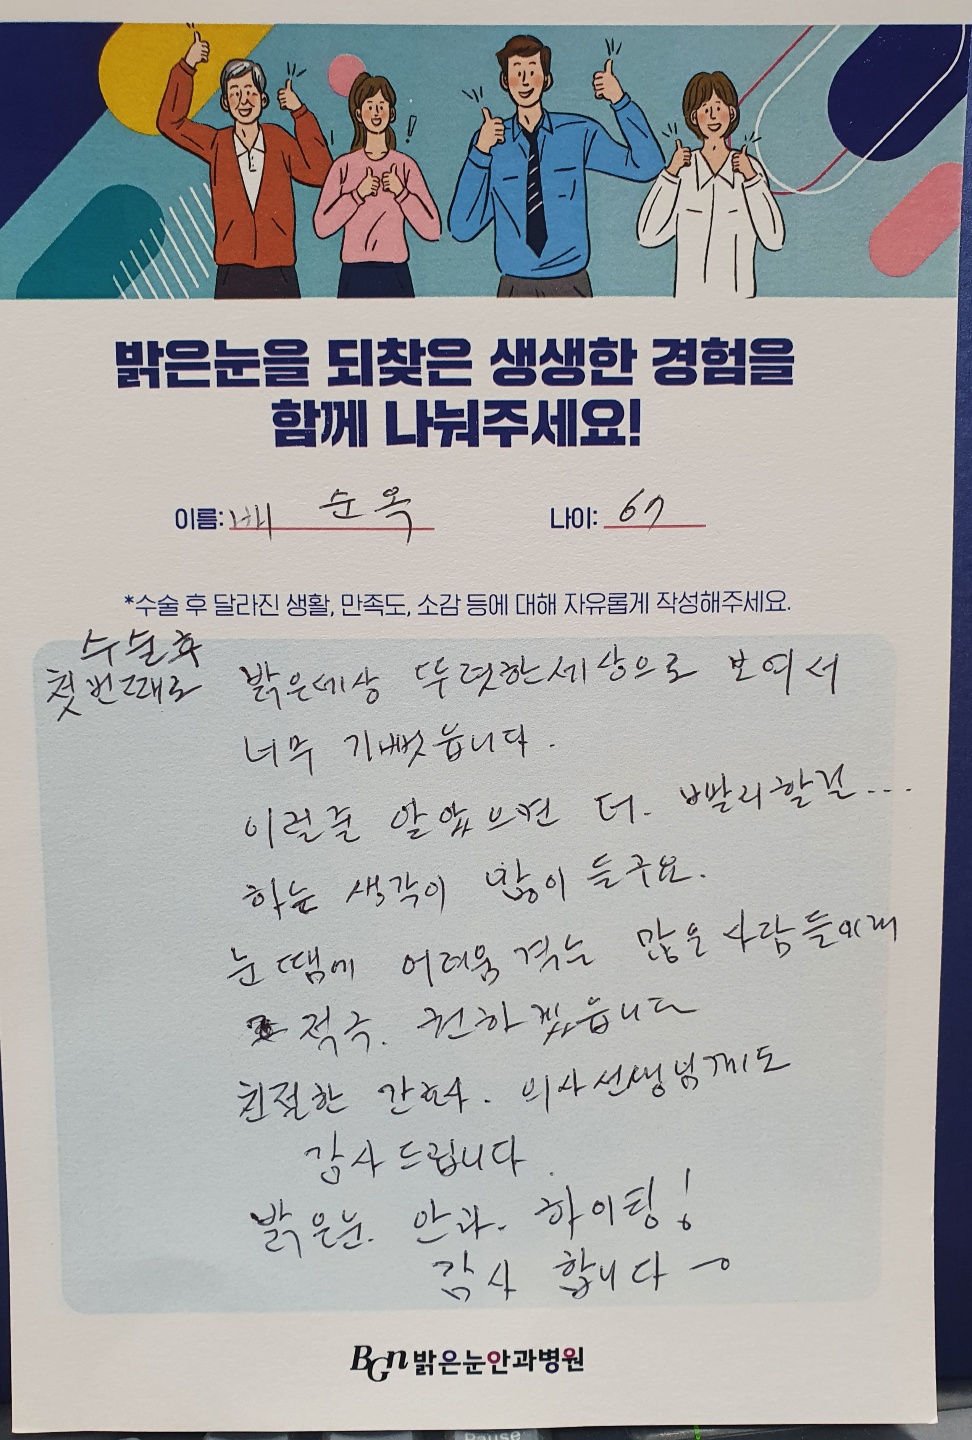 밝은눈을 되찾은 생생한 경험을
함께 나눠주세요!
이름: 배 순옥 나이: 67
*수술 후 달라진 생활, 만족도, 소감 등에 대해 자유롭게 작성해주세요.
수술후
첫번때로 밝은세상 뚜렷한세상으로 보여서
너무 기뻤읍니다.
이럴줄 알았으면 더. 빨리할걸...
하는 생각이 많이 들구요.
눈땜에 어려움격는 많은 사람들에게
적극. 권하겠읍니다
친절한 간호사. 의사선생님께도
감사드립니다.
밝은눈. 안과. 화이팅!
감사 합니다
BGn 밝은눈안과병원
Pause